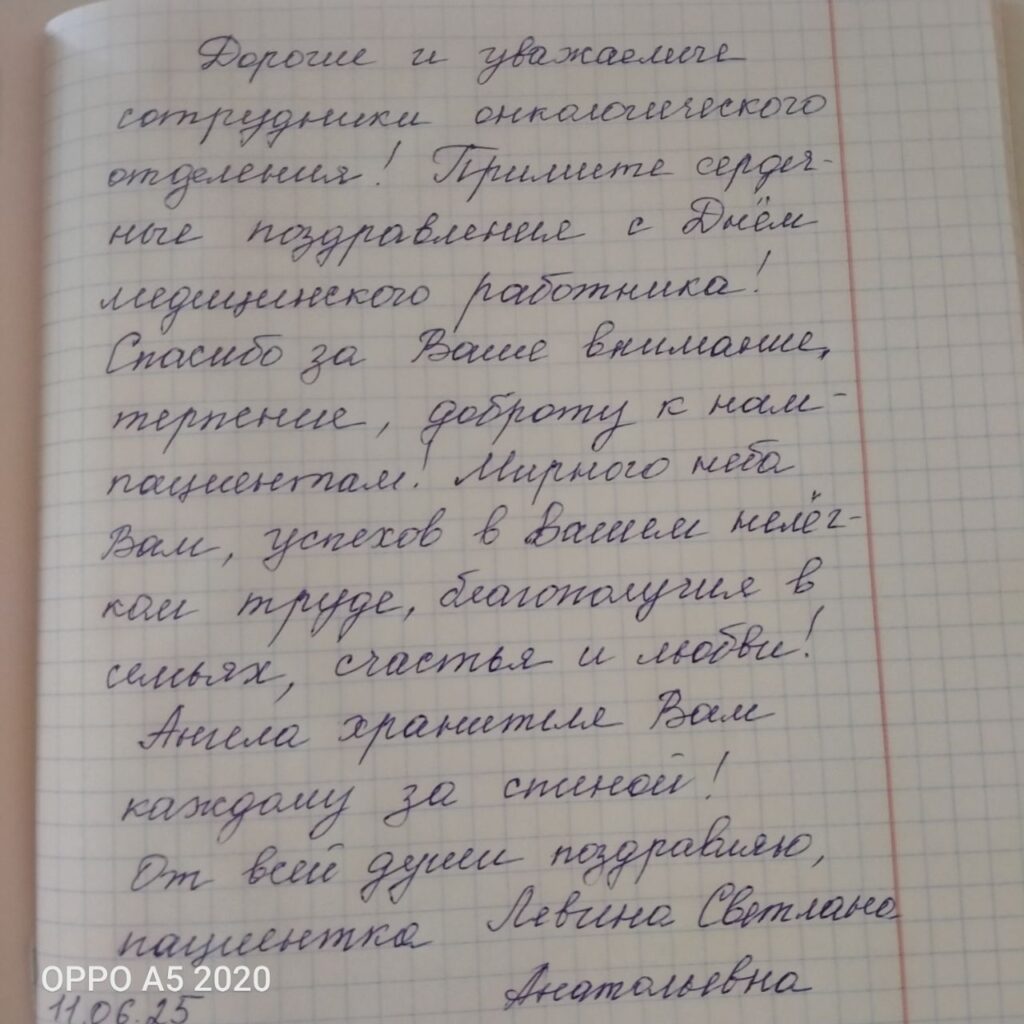 Дорогие и уважаемые
сотрудники онкологического
отделения! Примите сердеч-
ные поздравления с Днём
медицинского работника!
Спасибо за Ваше внимание,
терпение, доброту к нам-
пациентам! Мирного неба
Вам, успехов в Вашем нелёг-
ком труде, благополучия в
семьях, счастья и любви!
Ангела хранителя Вам
каждому за спиной!
От всей души поздравляю,
пациентка Левина Светлана
Анатольевна
OPPO A5 2020
11.06.25